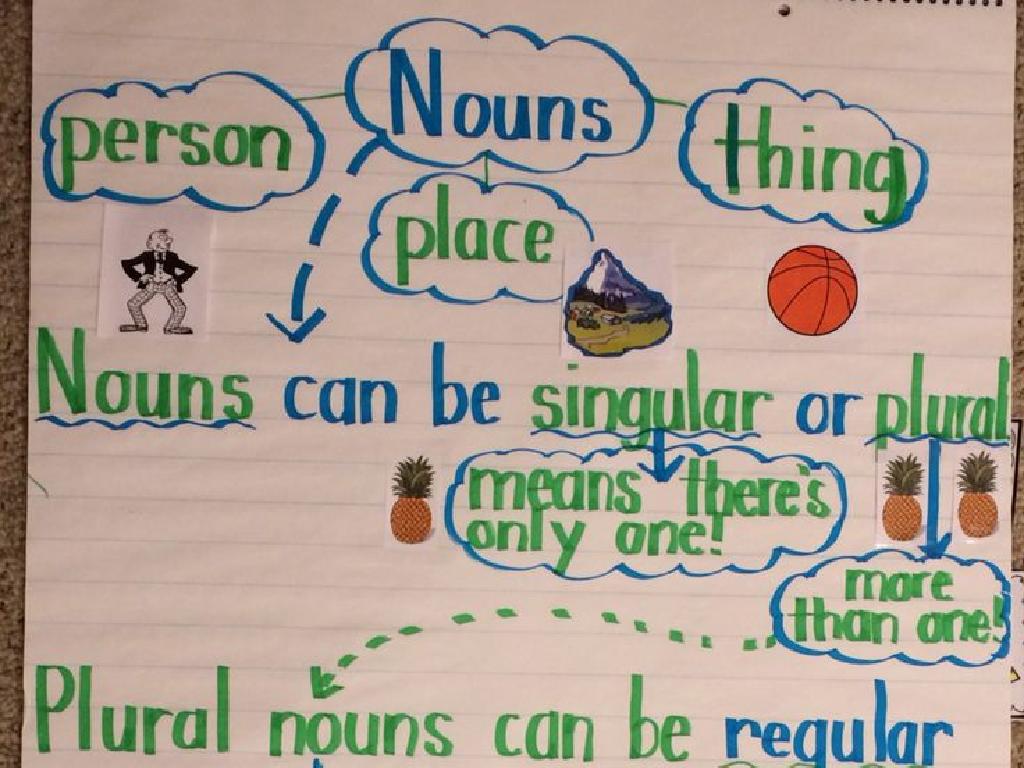 Nouns
person
place
thing
Nouns can be singular or plural
means there's
only one!
more
than one!
Plural nouns can be regular